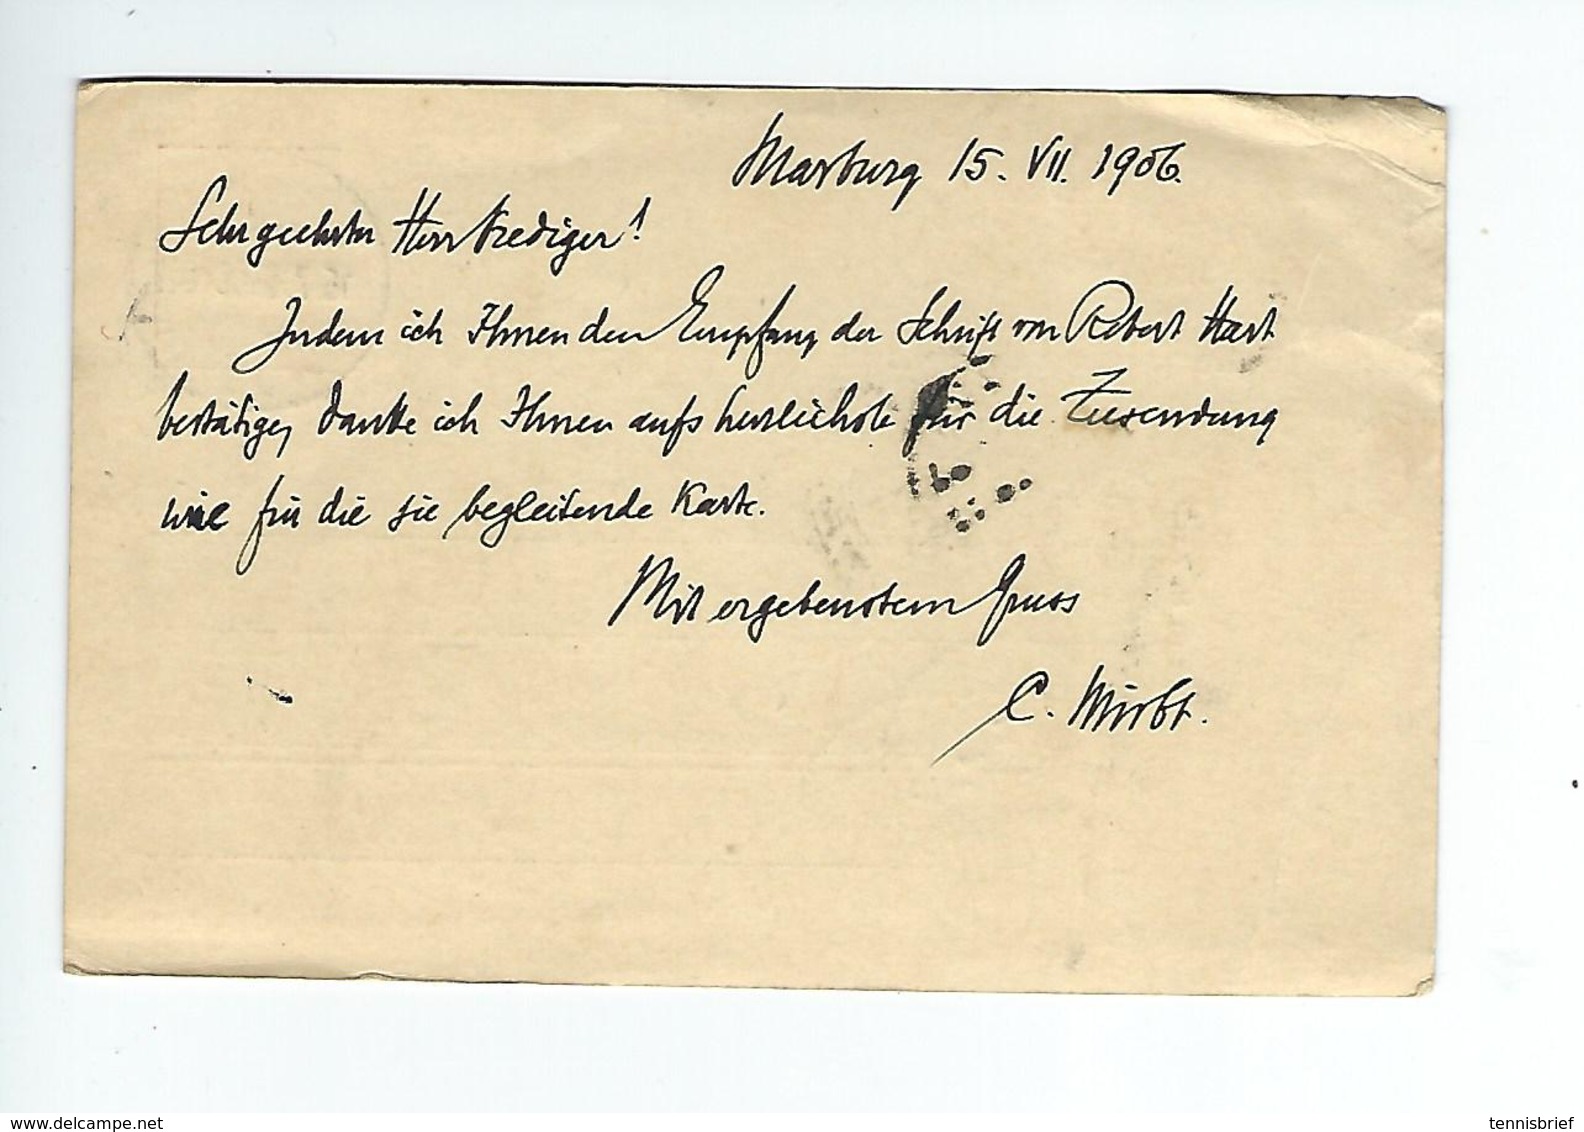 Marburg 15. VII. 1906.
Sehr geehrter Herr Prediger!
Indem ich Ihnen den Empfang der Schrift von Robert Hart
bestätige, danke ich Ihnen aufs herzlichste für die Zusendung
wie für die sie begleitende Karte.
Mit ergebenstem Gruss
C. Mirbt.
www.delcampe.net
tennisbrief